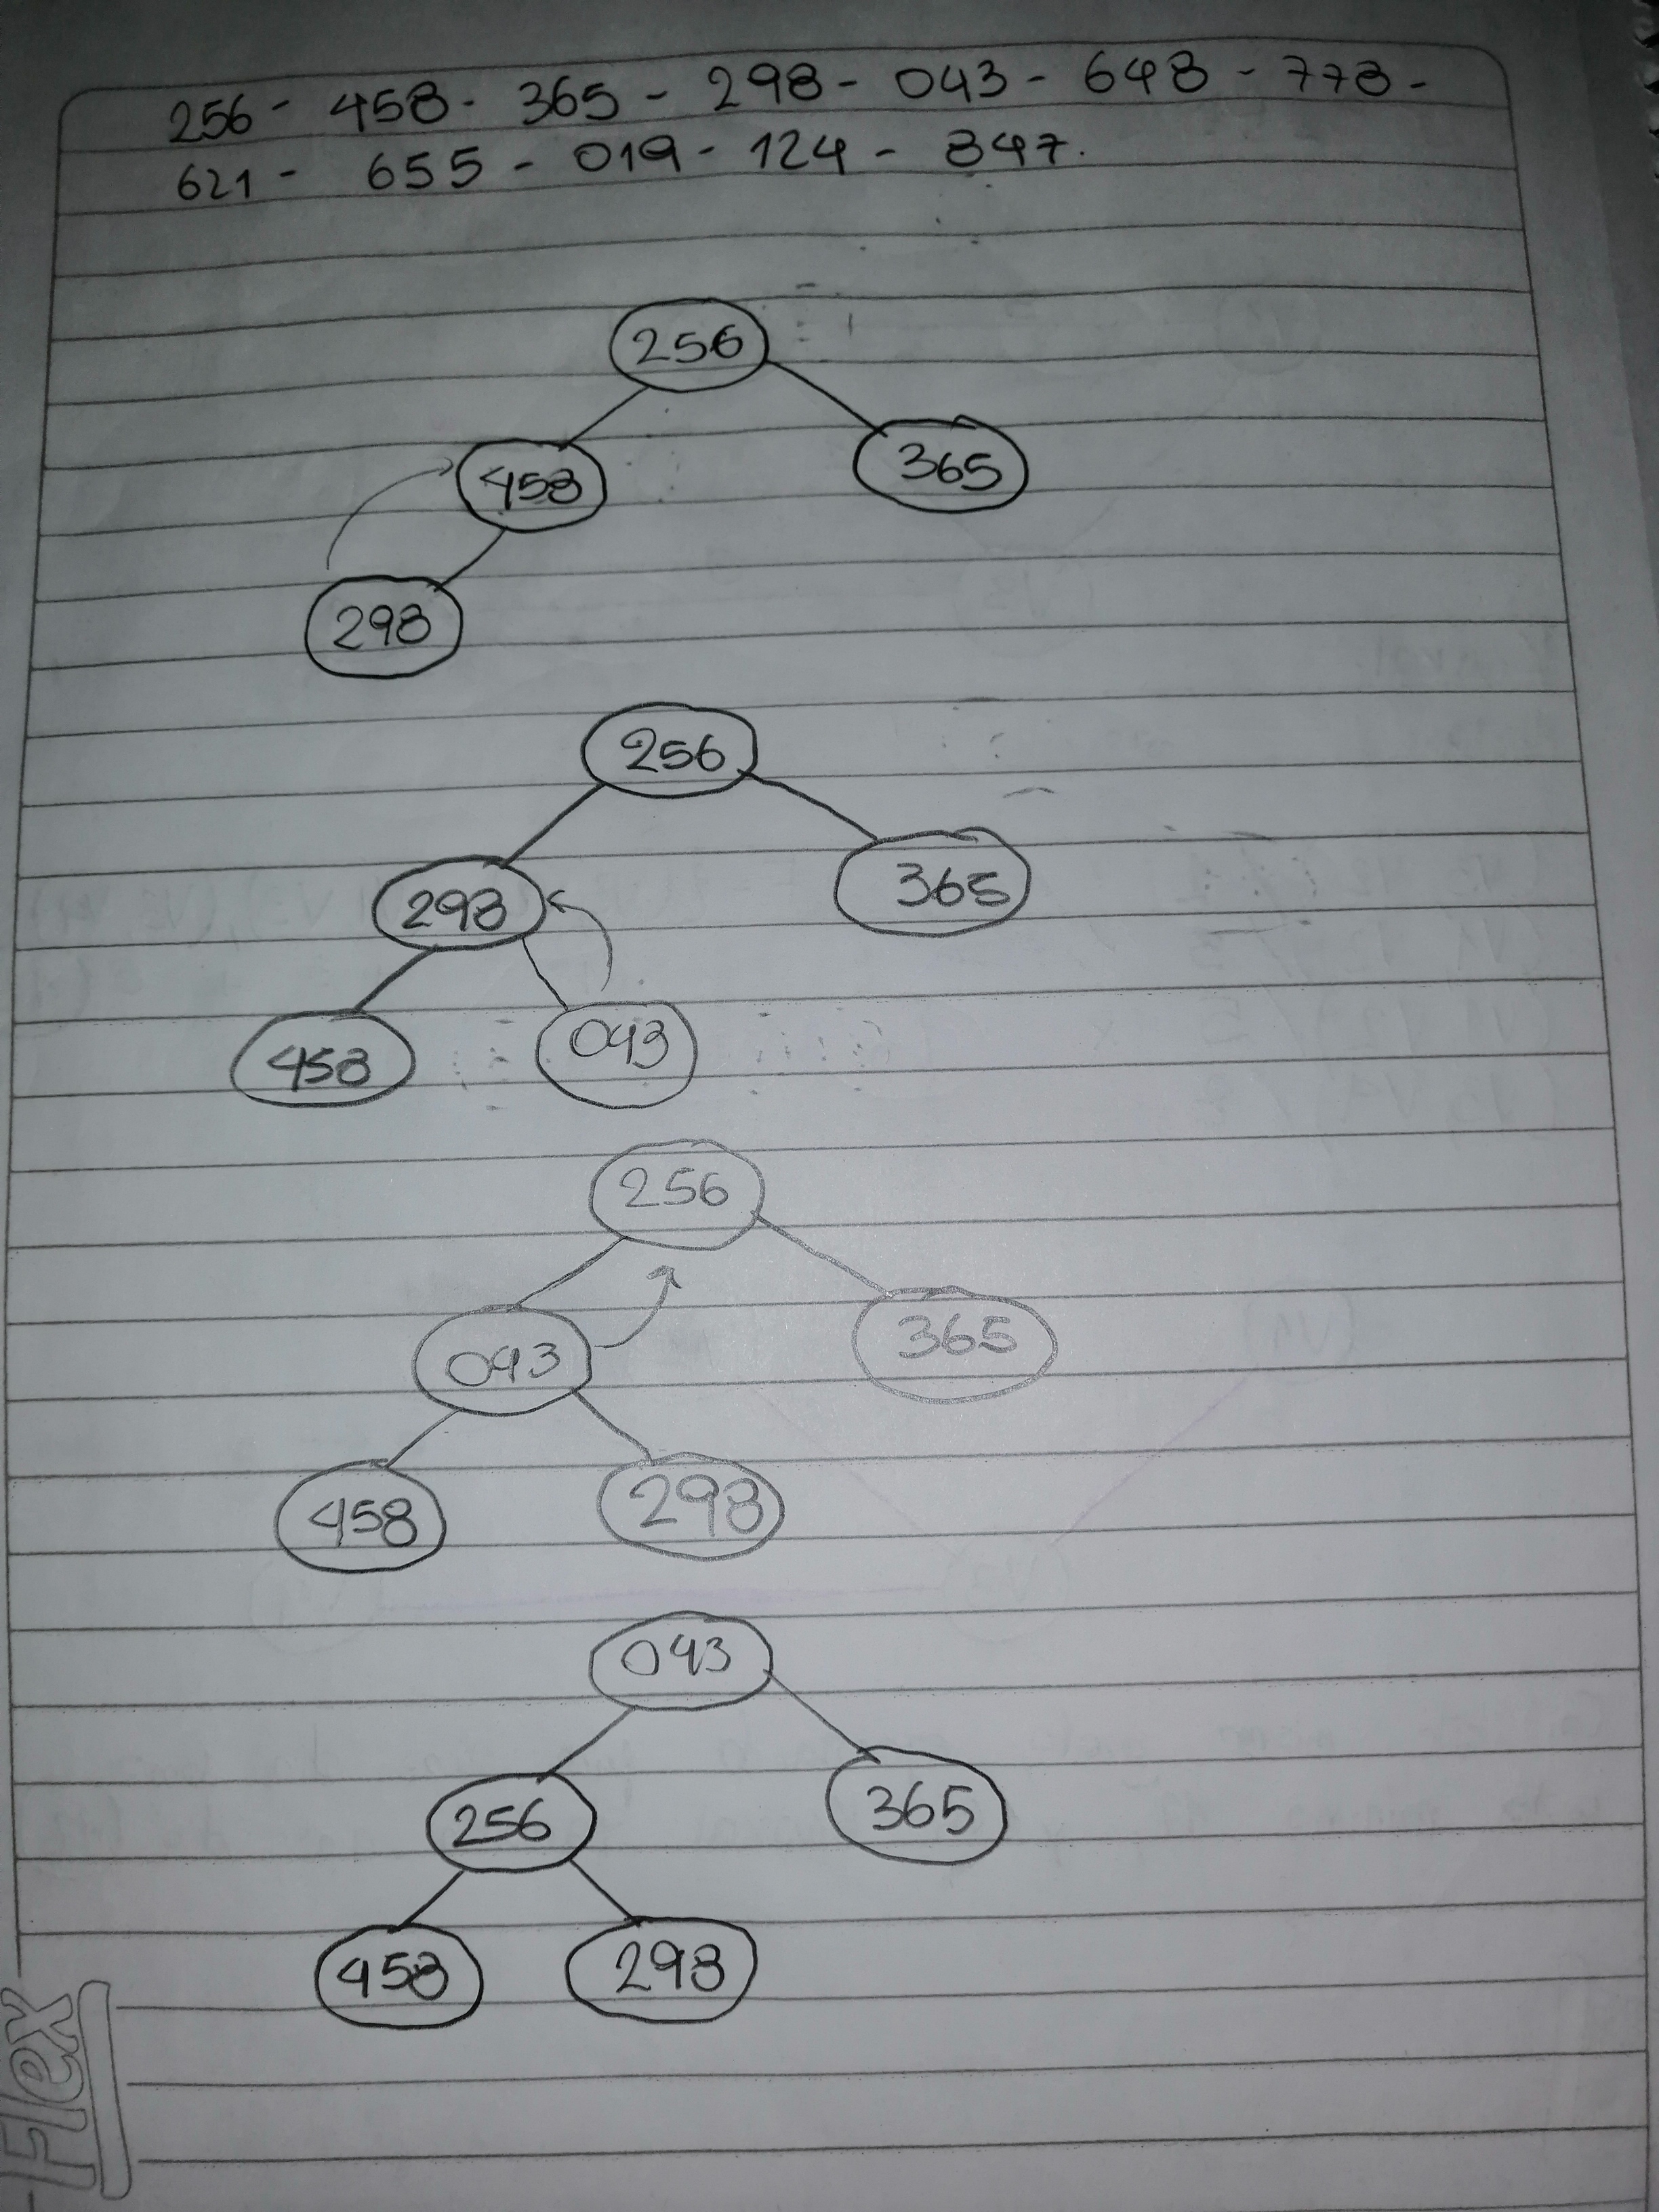 256 - 458 - 365 - 298 - 043 - 648 - 778 -
621 - 655 - 019 - 124 - 847.
256
458
365
298
256
298
365
458
043
256
043
365
458
298
043
256
365
458
298
Flex